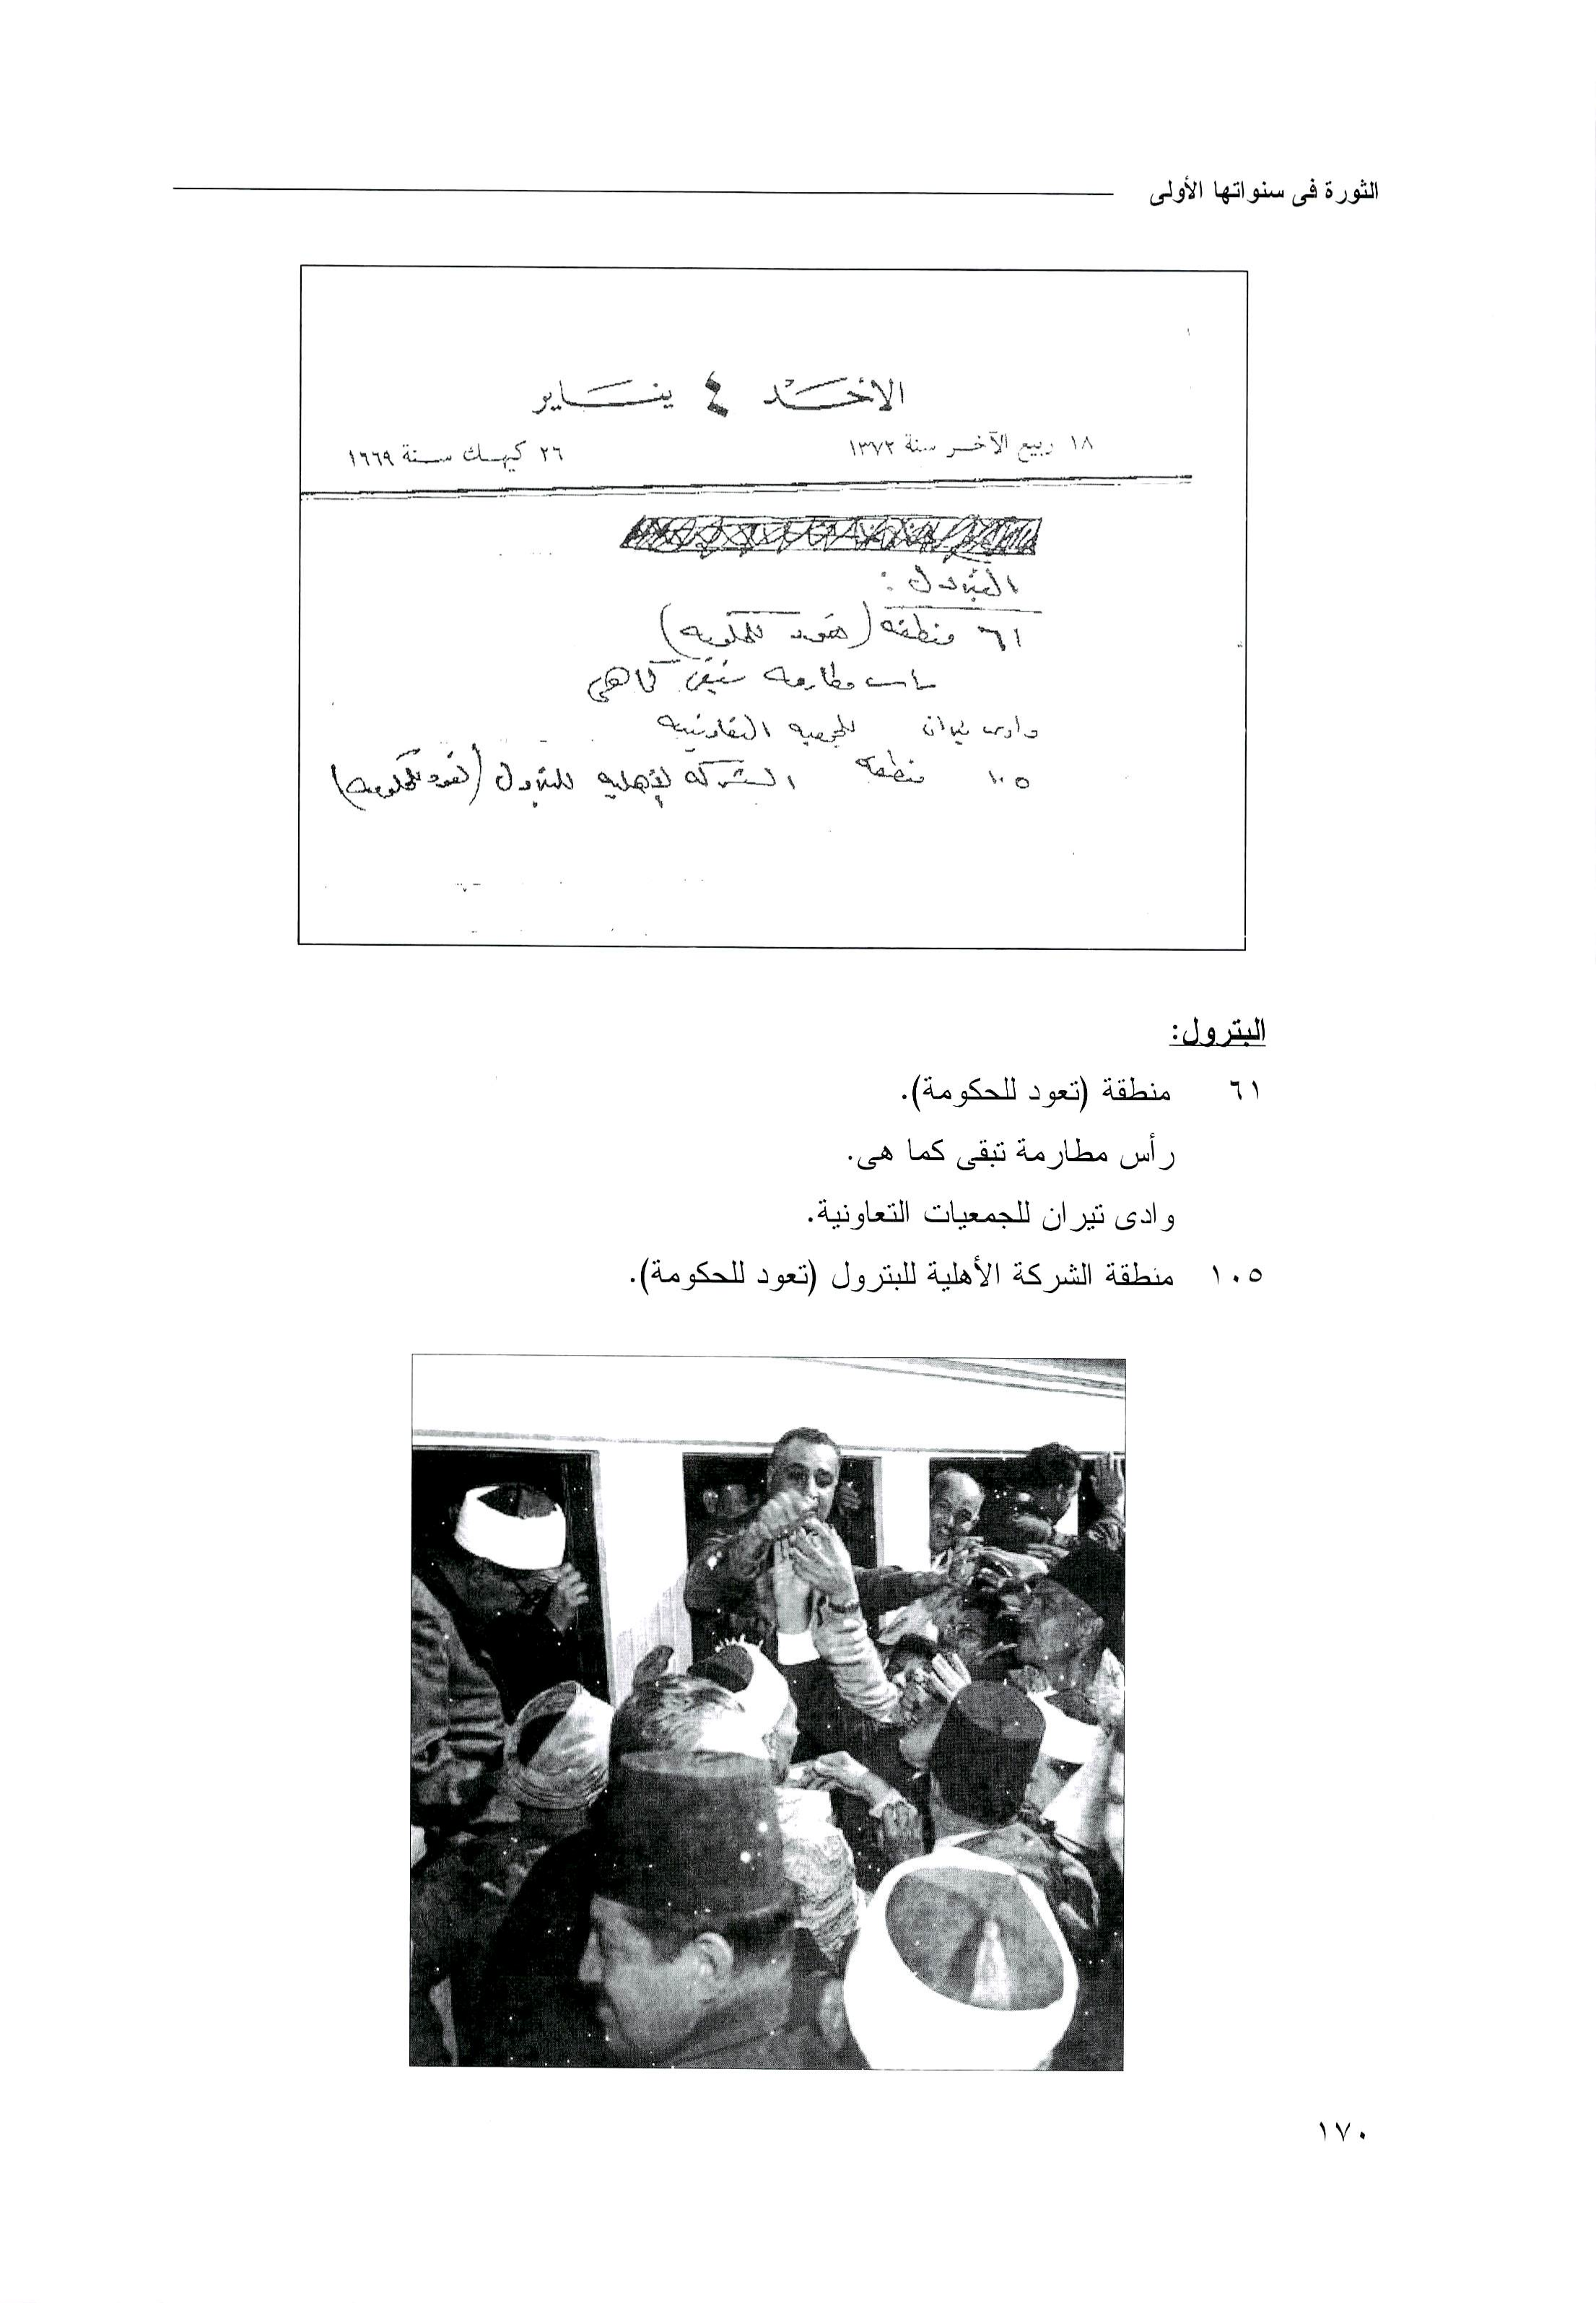 الثورة فى سنواتها الأولى
الأحد ٤ يناير
١٨ ربيع الآخر سنة ١٣٧٢ ٢٦ كيهك سنة ١٦٦٩
البترول :
٦١ منطقه (تعود للحكومه)
راس مطارمه تبقى كما هى
وادى تيران للجمعيه التعاونيه
١٠٥ منطقه الشركه الأهليه للبترول (تعود للحكومه)
البترول:
٦١ منطقة (تعود للحكومة).
رأس مطارمة تبقى كما هى.
وادى تيران للجمعيات التعاونية.
١٠٥ منطقة الشركة الأهلية للبترول (تعود للحكومة).
١٧٠